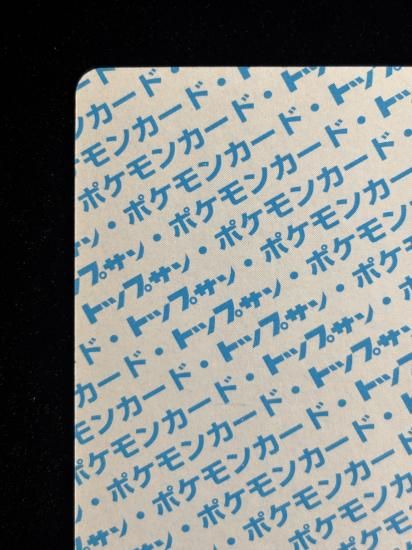 ンカード・
ケモンカード・ト
ポケモンカード・トップ
・ポケモンカード・トッ
サン・ポケモンカード・
トップサン・ポケモンカード
・トップサン・ポケモンカ
ド・トップサン・ポケモン
カード・トップサン・ポケ
ンカード・トップサン・
モンカード・トップサン
ケモンカード・トップ
ポケモンカード・
ン・ポケモンカード
トップサン・ポケモンカ
ポケモン